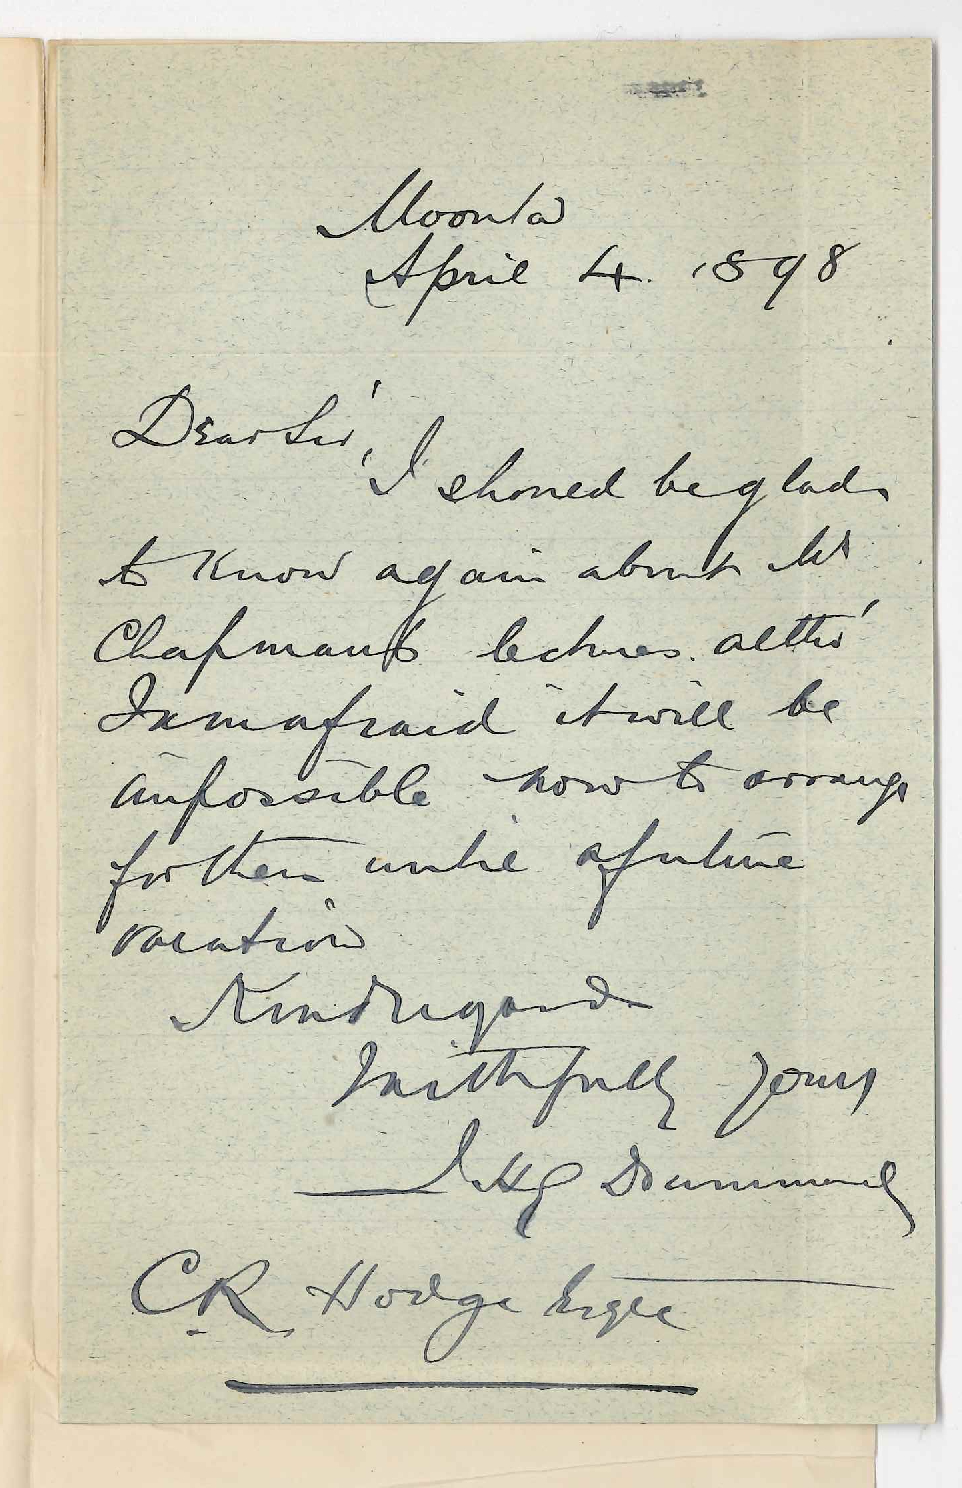 Moonta
April 4. 1898
Dear Sir,
I should be glad
to know again about Mr
Chapman's lectures. altho'
I am afraid it will be
impossible now to arrange
for them until a future
vacation
Kind regards
Faithfully yours
J H G Drummond
C R Hodge Esqre